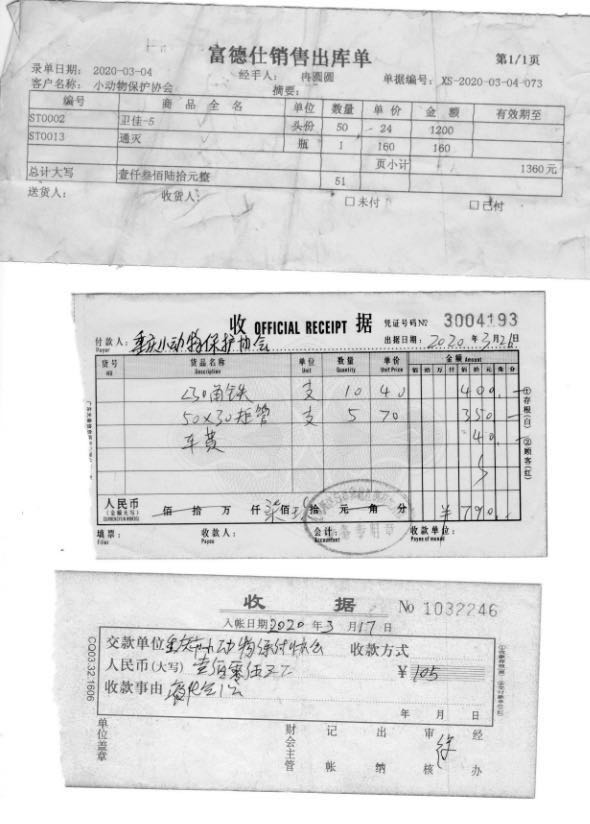 富德仕销售出库单
第1/1页
录单日期: 2020-03-04 经手人: 冉圆圆 单据编号: XS-2020-03-04-073
客户名称: 小动物保护协会 摘要:
编号 商品全名 单位 数量 单价 金额 有效期至
ST0002 卫佳-5 头份 50 24 1200
ST0013 通灭 瓶 1 160 160
页小计 1360元
总计大写 壹仟叁佰陆拾元整 51
送货人: 收货人: 口未付 口已付
收 OFFICIAL RECEIPT 据 凭证号码№ 3004193
付款人: 重庆小动物保护协会 出据日期: 2020年3月21日
Payer
货号 货品名称 单位 数量 单价 金额 Amount
NO Description Unit Quantity Unit Price 佰 拾 万 仟 佰 拾 元 角 分
∠30角铁 支 10 40 400
50×30矩管 支 5 70 350
车费 40
①存根(白) ②顾客(红)
人民币 佰 拾 万 仟 柒佰 玖拾 元 角 分 ¥790
(金额大写)
填票: 收款人: 会计: 收款单位:
Filler Payee Accountant
收据 No 1032246
入帐日期2020年3月17日
交款单位重庆市小动物保护协会 收款方式
人民币(大写) 壹佰零伍元 ¥105
收款事由
年 月 日
单位盖章 财会主管 记帐 出纳 审核 经办
CQ03.32.1606